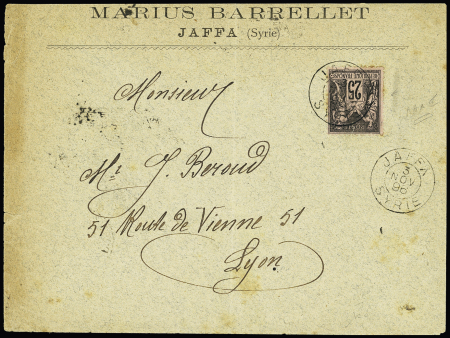 MARIUS BARRELLET
JAFFA (Syrie)
Monsieur
Mr J. Beroud
51 Route de Vienne 51
Lyon
25
JAFFA
3
NOV
SYRIE